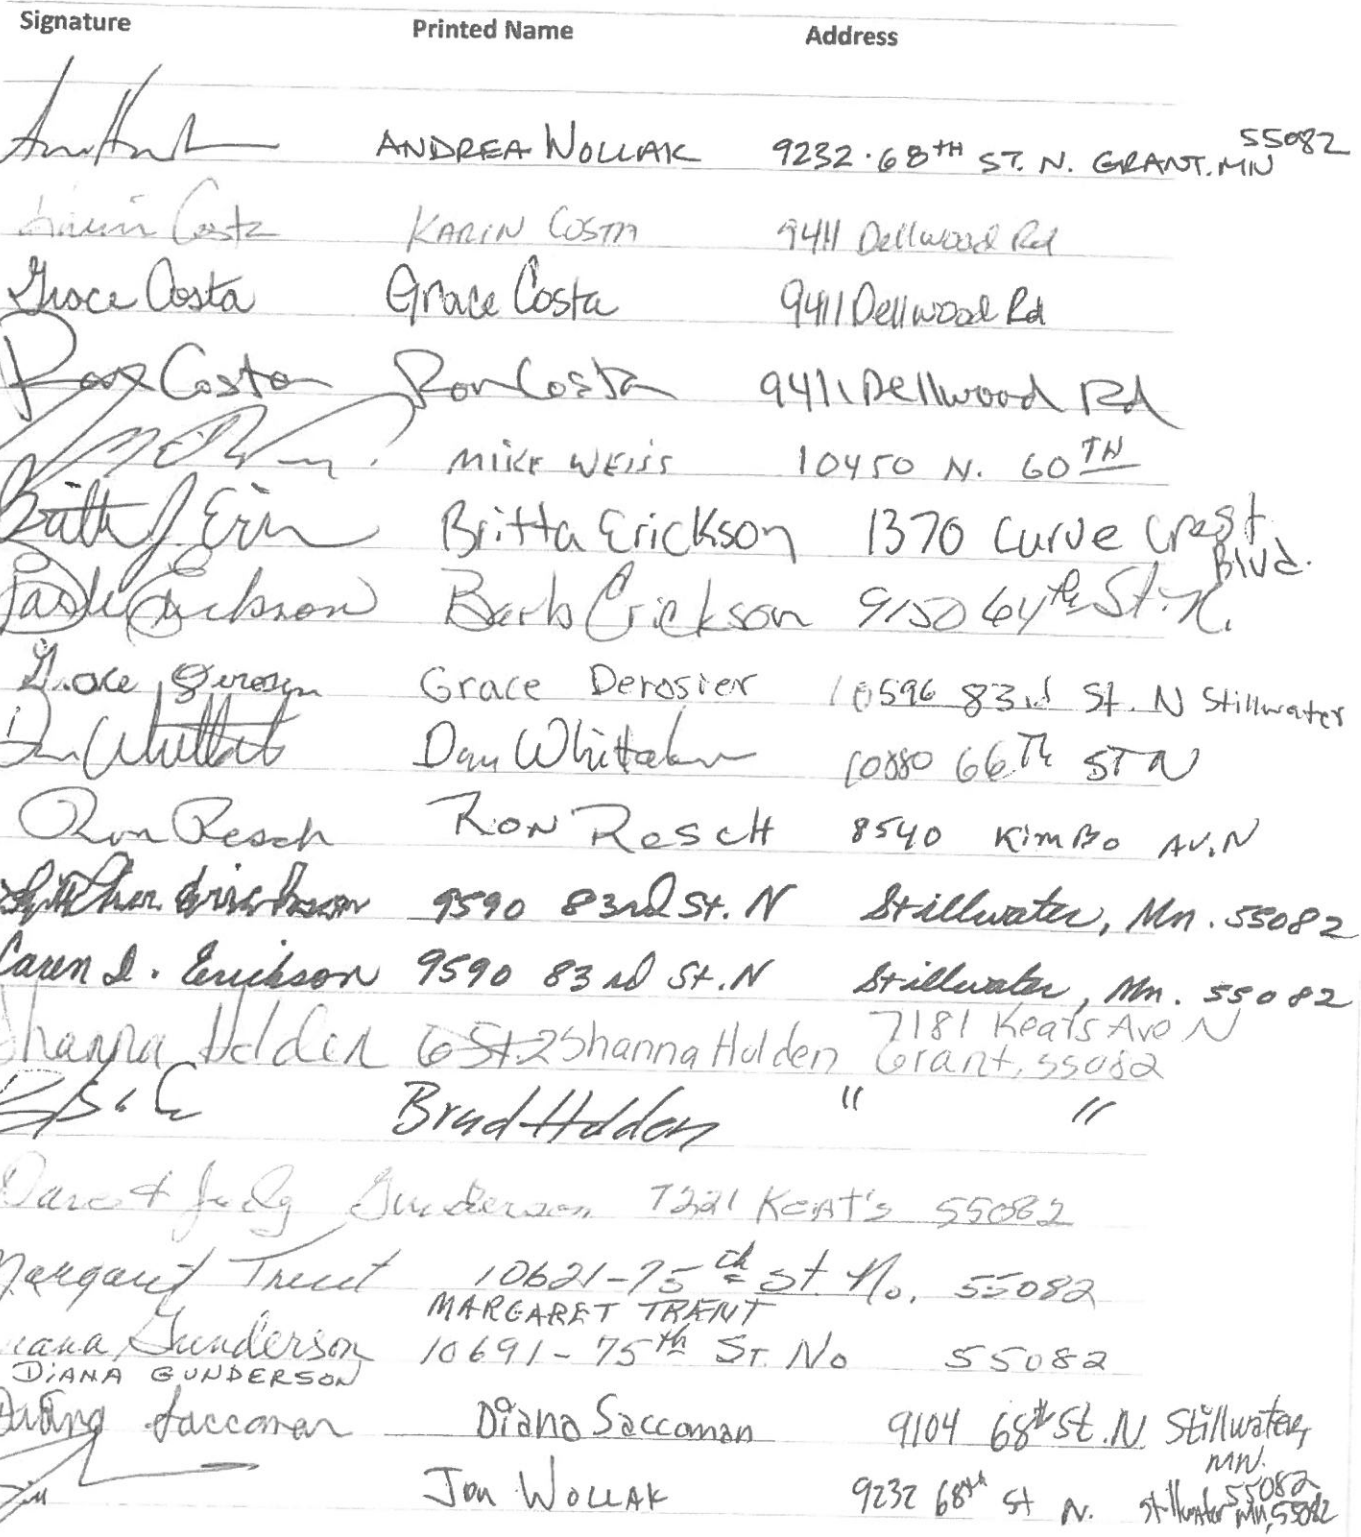 Signature Printed Name Address
ANDREA WOLLAK 9232 · 68TH ST. N. GRANT. MN 55082
Karin Costa KARIN COSTA 9411 Dellwood Rd
Grace Costa Grace Costa 9411 Dellwood Rd
Ron Costa Ron Costa 9411 Dellwood Rd
MIKE WEISS 10450 N. 60TH
Britta J. Britta Erickson 1370 Curve Crest Blvd.
Erickson Barb Erickson 9150 64th St. N.
Grace Derosier Grace Derosier 10596 83rd St. N Stillwater
Dan Whittaker 10880 66Th ST N
Ron Resch RON RESCH 8540 KimBo AV. N
Erickson 9590 83rd St. N Stillwater, Mn. 55082
Caren D. Erickson 9590 83rd St. N Stillwater, Mn. 55082
Shanna Holden Shanna Holden 7181 Keats Ave N Grant, 55082
Brad Holden " "
Judy Gunderson 7221 KEAT'S 55082
Margaret Trent 10621-75th St. No. 55082
MARGARET TRENT
Diana Gunderson 10691-75th ST. No 55082
DiANA GUNDERSON
Saccoman Diana Saccoman 9104 68th St. N. Stillwater, MN. 55082
Jon WOLLAK 9232 68th St N. Stillwater MN, 55082